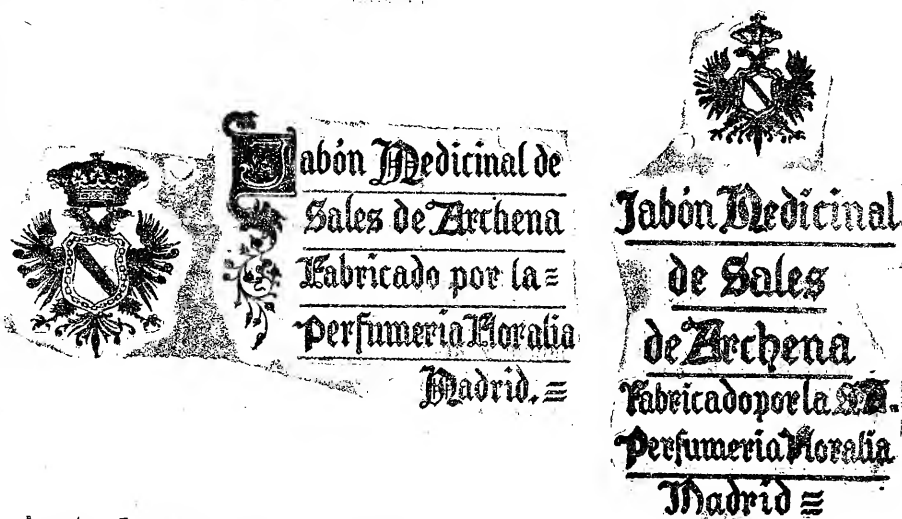 Jabón Medicinal de
Sales de Archena
Fabricado por la =
Perfumeria Floralia
Madrid. =
Jabón Medicinal
de Sales
de Archena
Fabricado por la
Perfumeria Floralia
Madrid =